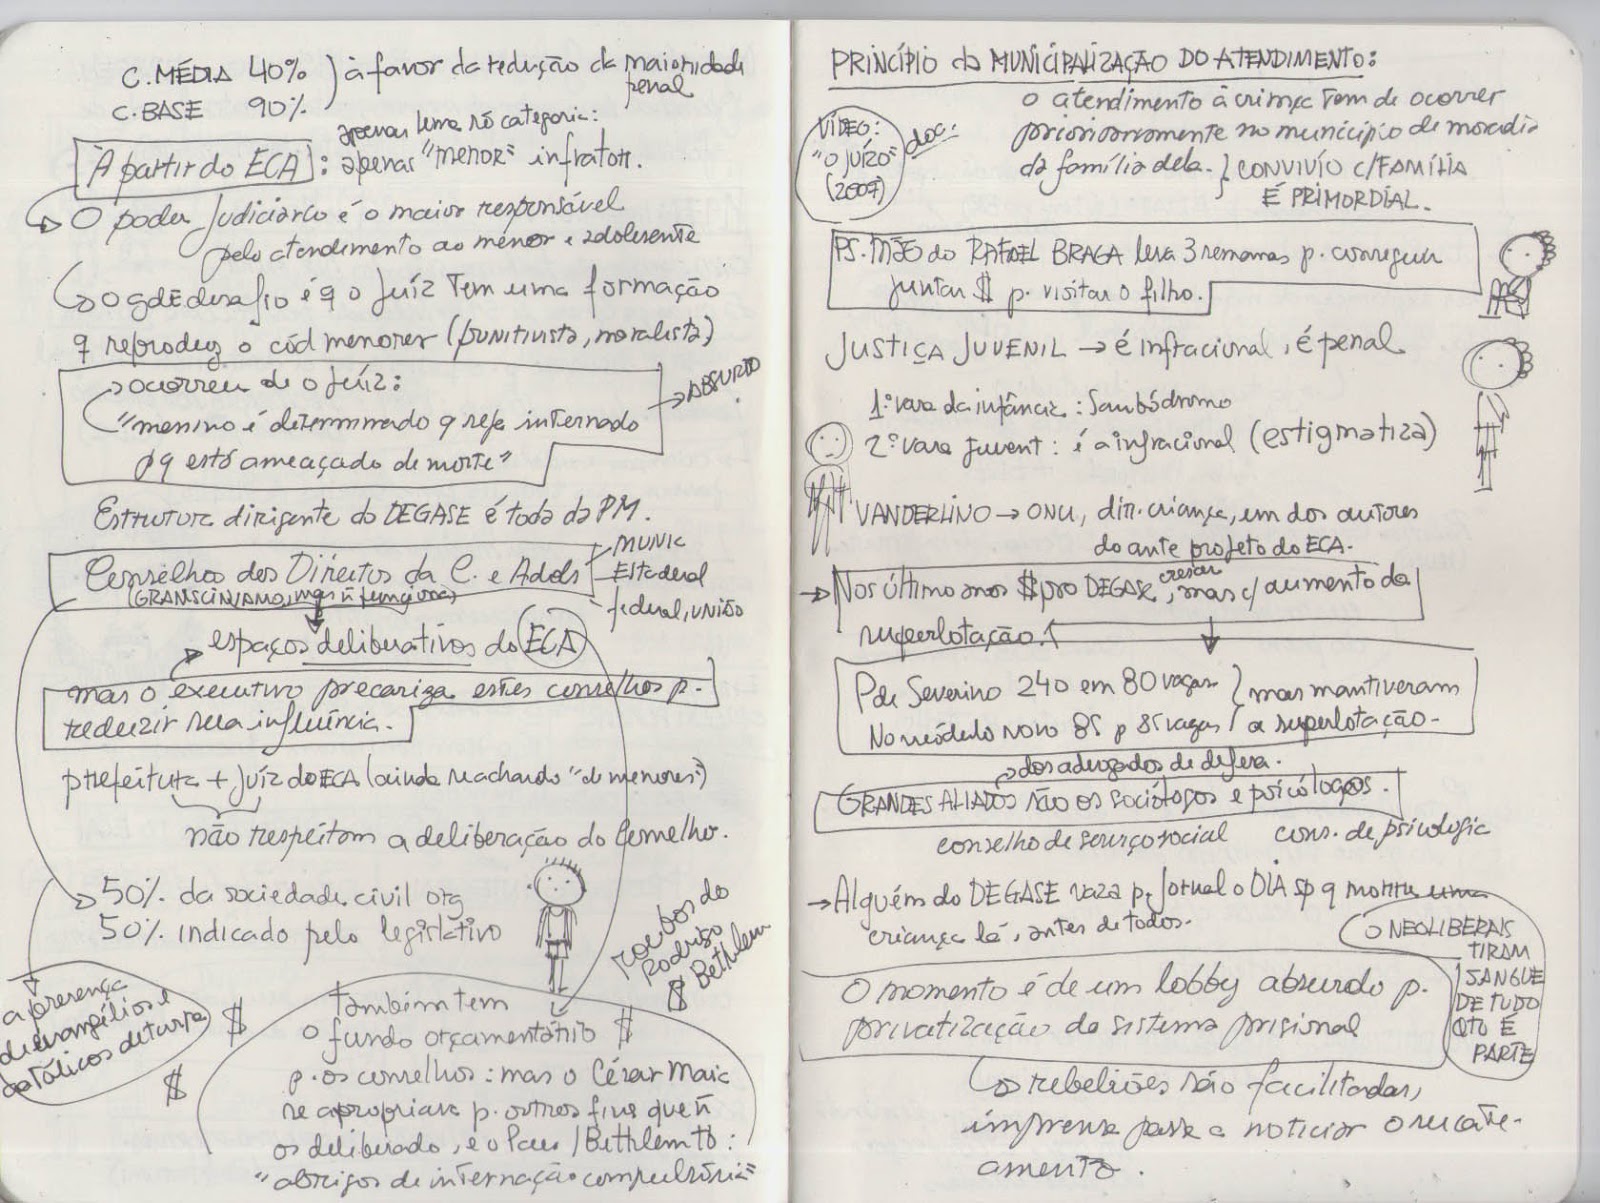 C. MÉDIA 40% ) à favor da redução da maioridade
C. BASE 90% penal
apenas uma só categoria:
A partir do ECA : apenas "MENOR" infrator.
O poder Judiciário é o maior responsável
pelo atendimento ao menor e adolescente
o gde desafio é q o Juíz tem uma formação
q reproduz o cód menores (punitivista, moralista)
ocorreu de o Juíz: → ABSURDO
"menino é determinado q seja internado
pq está ameaçado de morte"
Estrutura dirigente do DEGASE é toda da PM.
Conselhos dos Direitos da C. e Adols
MUNIC
Estaderal
federal, união
espaços deliberativos do ECA
mas o executivo precariza estes conselhos p.
reduzir sua influência.
prefeitura + Juíz do ECA (ainda rachando "de menores")
não respeitam a deliberação do Conselho.
50% da sociedade civil org
50% indicado pelo legislativo
roubos do
Rodrigo
$ Bethlem
a presença
de evangélicos e
católicos deturpa
$
$
também tem
o fundo orçamentário $
p. os conselhos: mas o César Maia
se apropriava p. outros fins que ñ
os deliberado, e o Paes / Bethlem tb:
"abrigos de internação compulsória"
PRINCÍPIO da MUNICIPALIZAÇÃO DO ATENDIMENTO:
o atendimento à criança tem de ocorrer
prioritariamente no município de moradia
da família dela. } CONVIVÍO C/FAMÍLIA
É PRIMORDIAL.
VÍDEO: doc.
"O JUÍZO"
(2007)
PS. MÃE do RAFAEL BRAGA leva 3 semanas p. conseguir
juntar $ p. visitar o filho.
JUSTIÇA JUVENIL → é infracional, é penal
1ª vara da infância: Sambódromo
2ª vara juvent: é a infracional (estigmatiza)
VANDERLINO → ONU, dir. criança, um dos autores
do ante projeto do ECA.
→ Nos último anos $ pro DEGASE cresceu, mas c/ aumento da
superlotação.
Pde Severino 240 em 80 vagas } mas mantiveram
No módulo novo 85 p 85 vagas a superlotação.
dos advogados de defesa.
GRANDES ALIADOS são os sociólogos e psicólogos.
conselho de serviço social cons. de psicologia
→ Alguém do DEGASE vaza p. Jornal o DIA sp q morre uma
criança lá, antes de todos.
O NEOLIBERAIS
TIRAM
SANGUE
DE TUDO
QTO É
PARTE
O momento é de um lobby absurdo p.
privatização do sistema prisional
as rebeliões são facilitadas,
imprensa passa a noticiar o sucate-
amento.